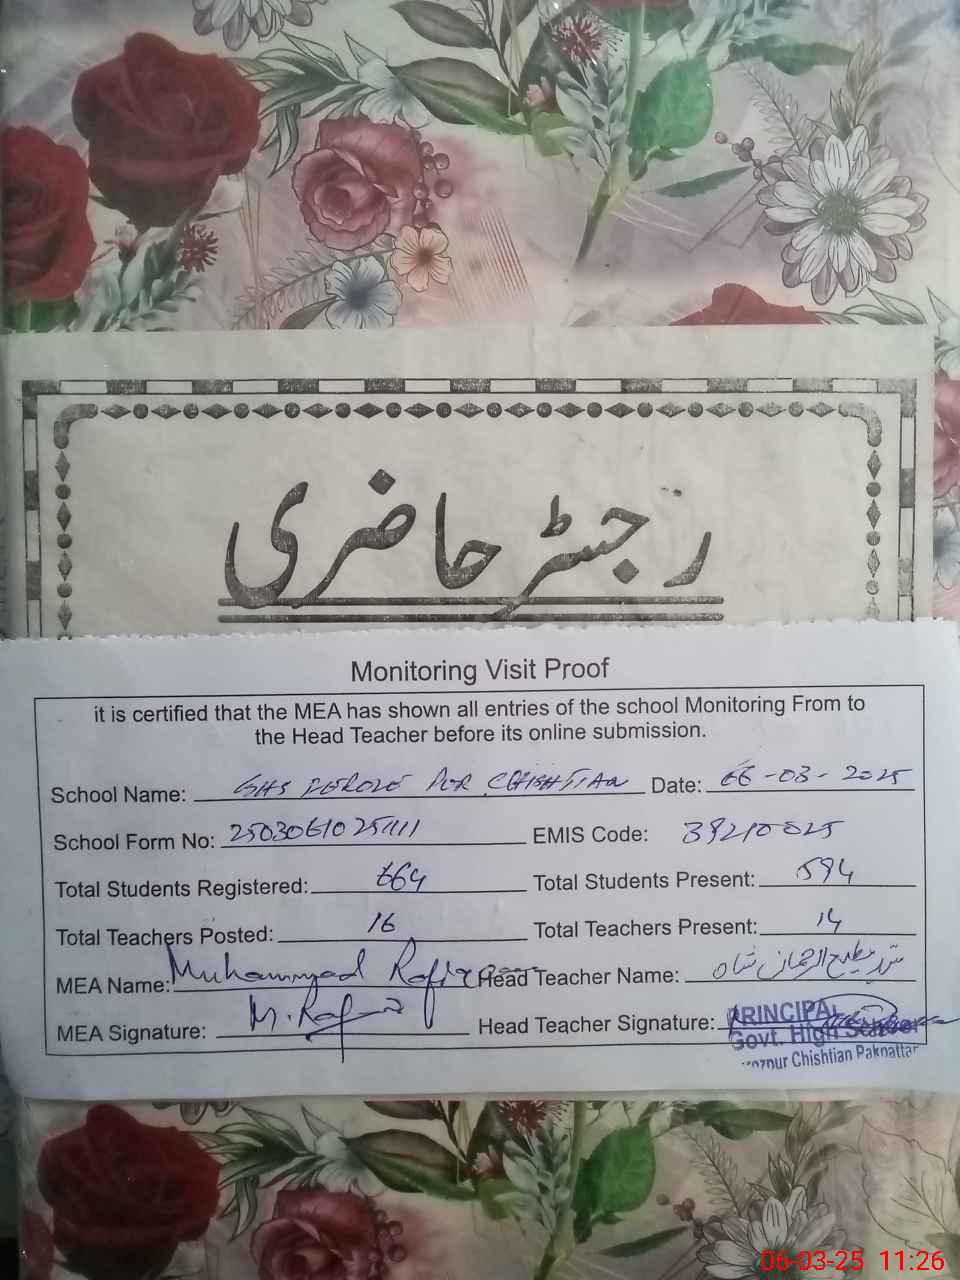 رجسٹر حاضری
Monitoring Visit Proof
it is certified that the MEA has shown all entries of the school Monitoring From to
the Head Teacher before its online submission.
School Name: GHS FEROZE PUR CHISHTIAN Date: 06-03-2025
School Form No: 25030610251111 EMIS Code: 39210025
Total Students Registered: 664 Total Students Present: 594
Total Teachers Posted: 16 Total Teachers Present: 14
MEA Name: Muhammad Head Teacher Name: شاہ
MEA Signature: Head Teacher Signature:
PRINCIPAL
Govt. High School
Chishtian Pakpattan
06-03-25 11:26